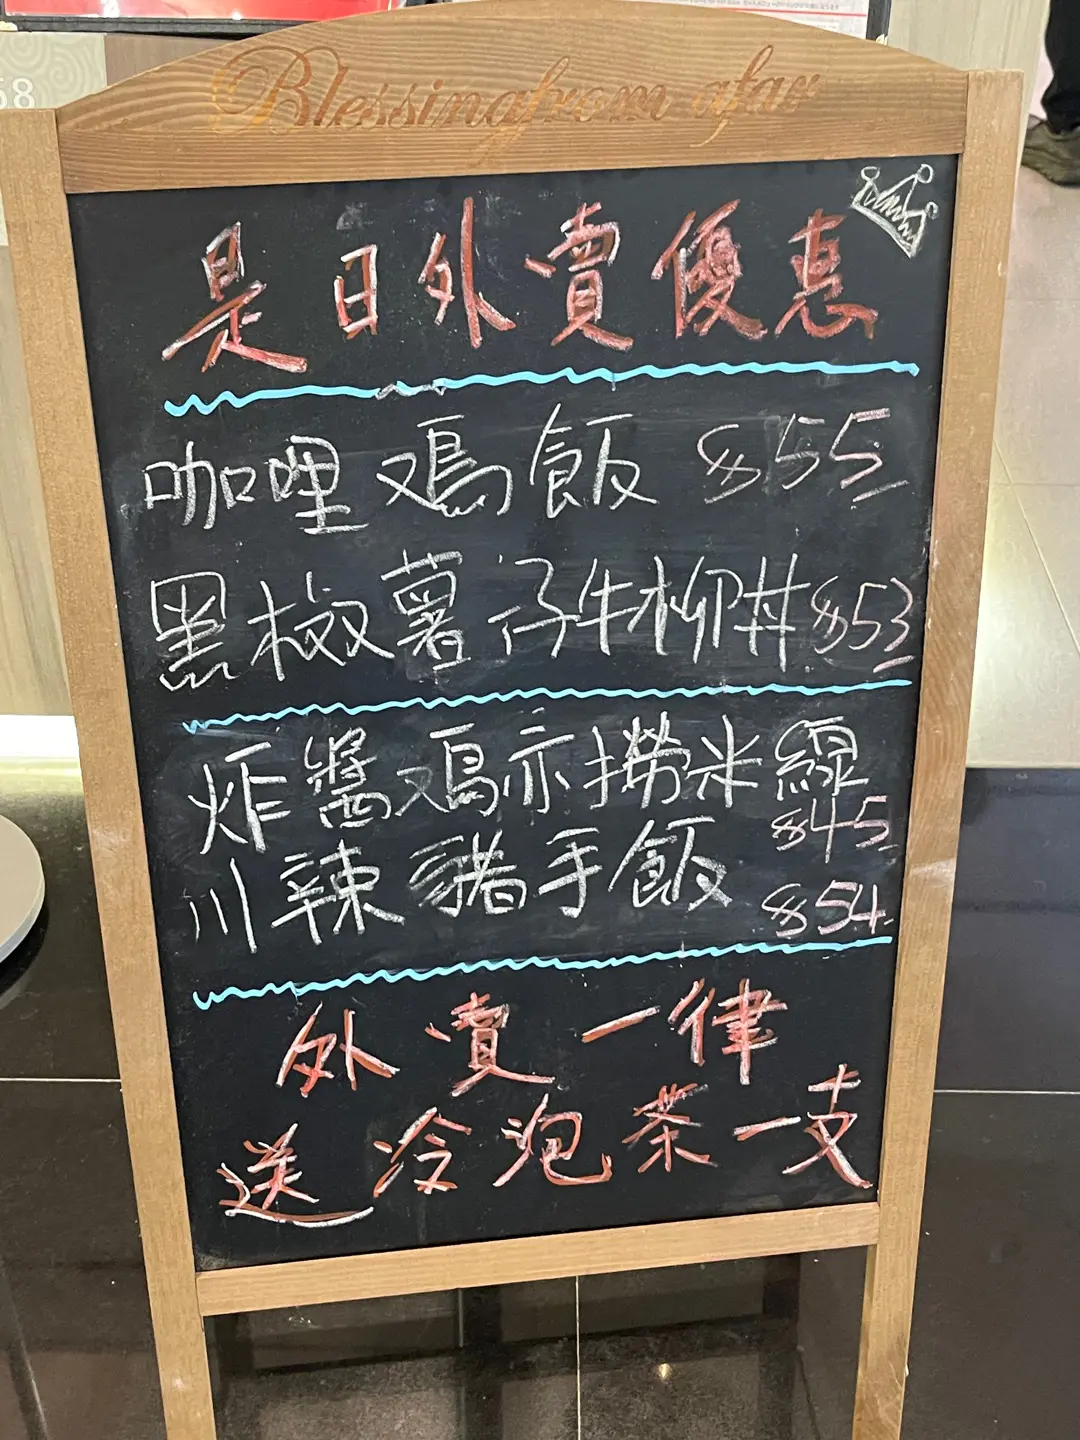 Blessing from afar
是日外賣優惠
咖哩鷄飯 $55
黑椒薯仔牛柳丼 $53
炸醬鷄亦撈米線 $45
川辣豬手飯 $54
外賣一律
送冷泡茶一支
58